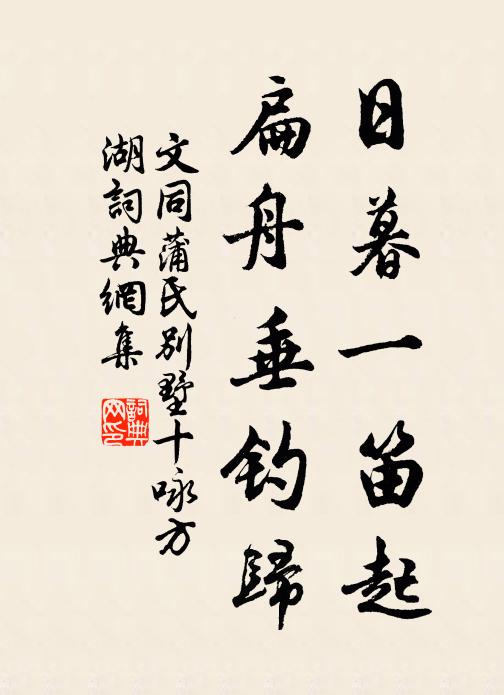 日暮一笛起
扁舟垂钓歸
文同蒲氏别墅十咏方
湖詞典網集
詞典
网印